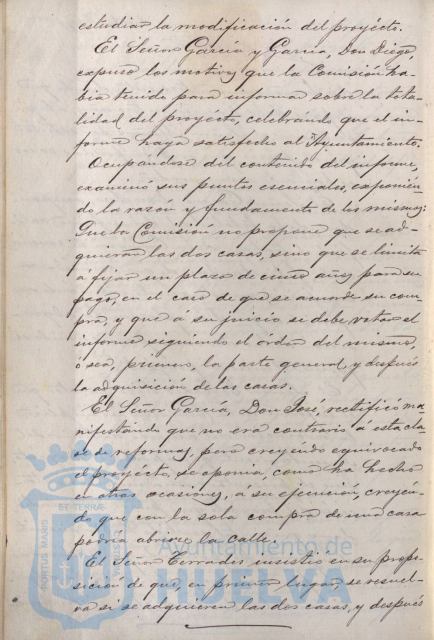 estudiar la modificación del proyecto.
El Señor García y García, Don Diego,
expuso los motivos que la Comisión ha-
bia tenido para informar sobre la tota-
lidad del proyecto, celebrando que el in-
forme haya satisfecho al Ayuntamiento.
Ocupándose del contenido del informe,
examinó sus puntos esenciales, exponien-
do la razón y fundamento de los mismos:
Que la Comisión no propone que se ad-
quieran las dos casas, sino que se limita
á fijar un plazo de cinco años para su
pago, en el caso de que se acuerde su com-
pra, y que á su juicio se debe votar el
informe siguiendo el órden del mismo,
ó sea, primero, la parte general, y después
la adquisición de las casas.
El Señor García, Don José, rectificó ma-
nifestando que no era contrario á esta cla-
se de reformas, pero creyendo equivocado
el proyecto, se oponia, como ha hecho
en otras ocasiones, á su ejecución, creyen-
do que con la sola compra de una casa
podria abrirse la calle.
El Señor Terrades, insistió en su propo-
sición de que, en primer lugar, se resuel-
va si se adquieren las dos casas, y después
PORTUS MARIS
ET TERRAE
Ayuntamiento de
HUELVA